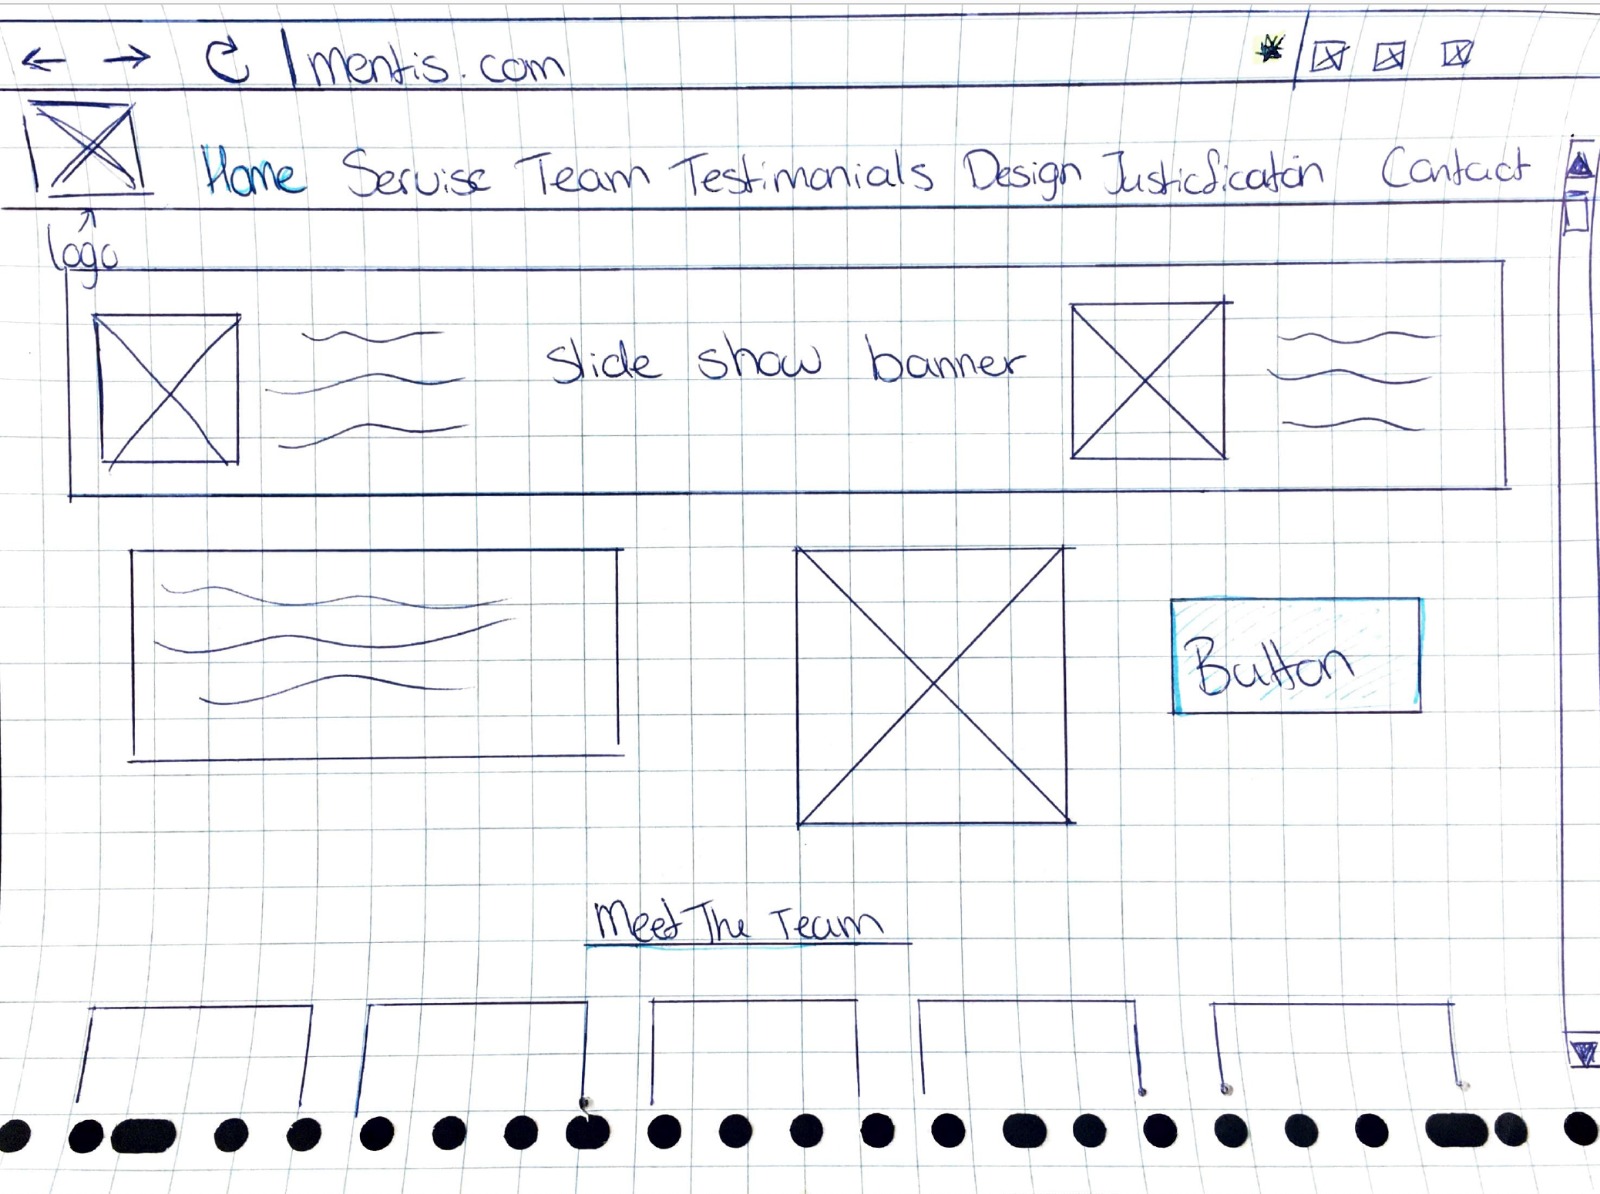 mentis.com
Home Servise Team Testimonials Design Justicfication Contact
logo
Slide show banner
Button
Meet The Team